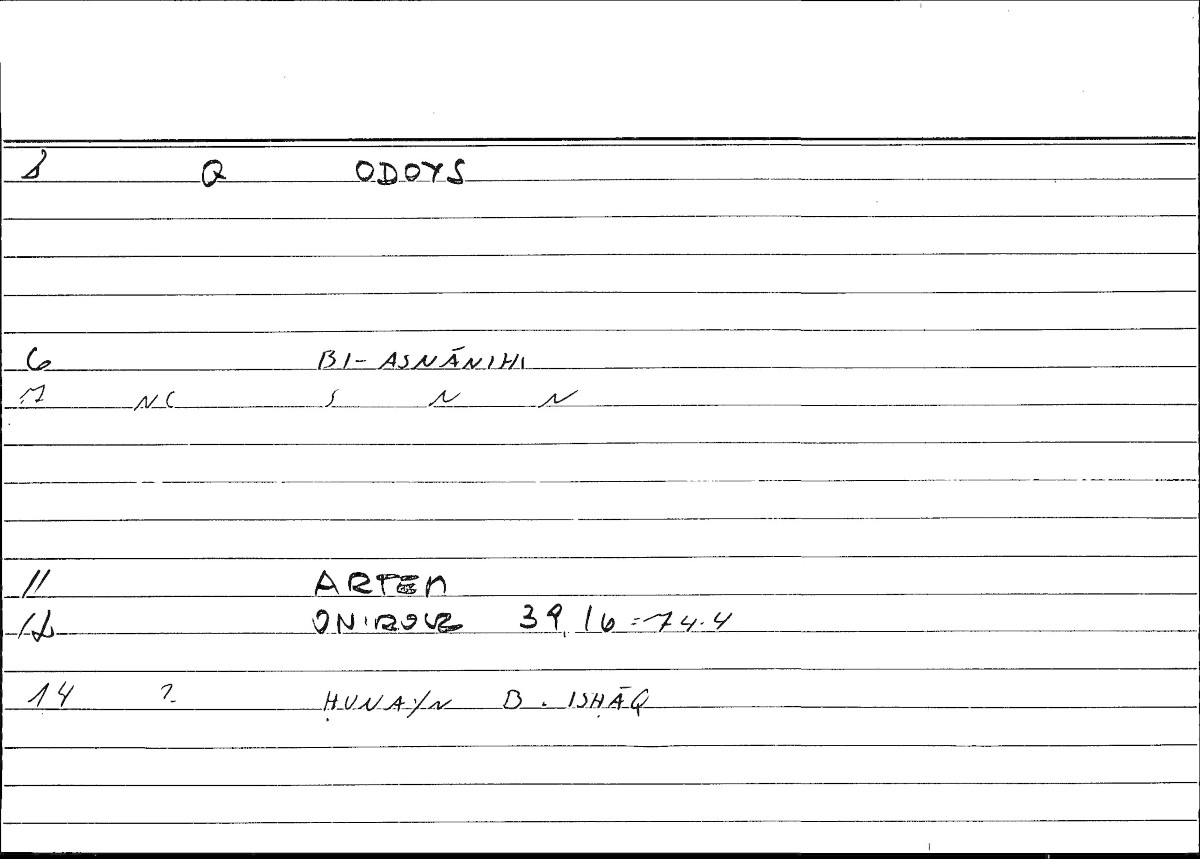 1 Q ODOYS
6 BI- ASNĀNIHI
7 NC S N N
11 ARTEM
12 ONIROCR 39,16 = 74.4
14 ? ḤUNAYN B. ISḤĀQ